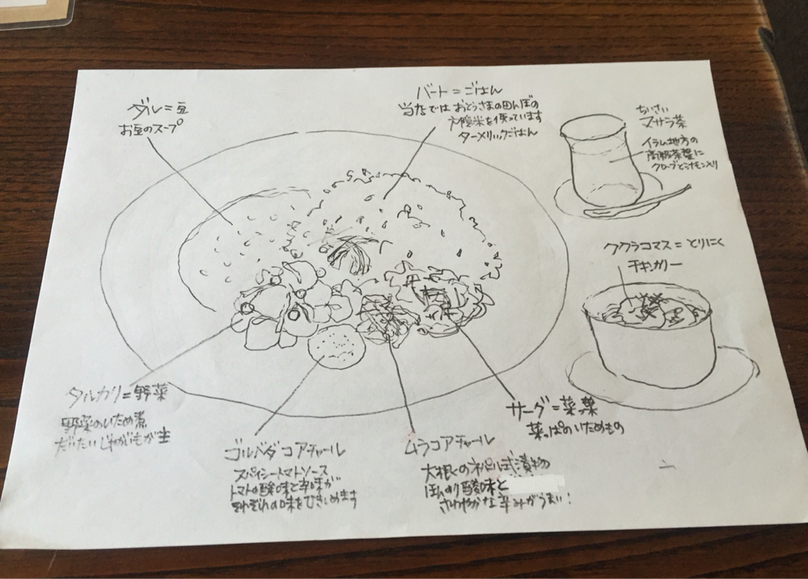 ダル=豆
お豆のスープ
バート=ごはん
当店では おとうさまの田んぼの
米を使っています
ターメリックごはん
ちいさい
マサラ茶
イラム地方の
高級茶葉に
クローブと
ククラコマス=とりにく
チキンカリー
タルカリ=野菜
野菜のいため煮
だいたいじゃがいもが主
ゴルバダコアチャール
スパイシートマトソース
トマトの酸味と辛味が
それぞれの味をひきしめます
ムラコアチャール
大根のネパール式漬物
ほんのり酸味と
さわやかな辛みがうまい!
サーグ=菜っ葉
菜っぱのいためもの